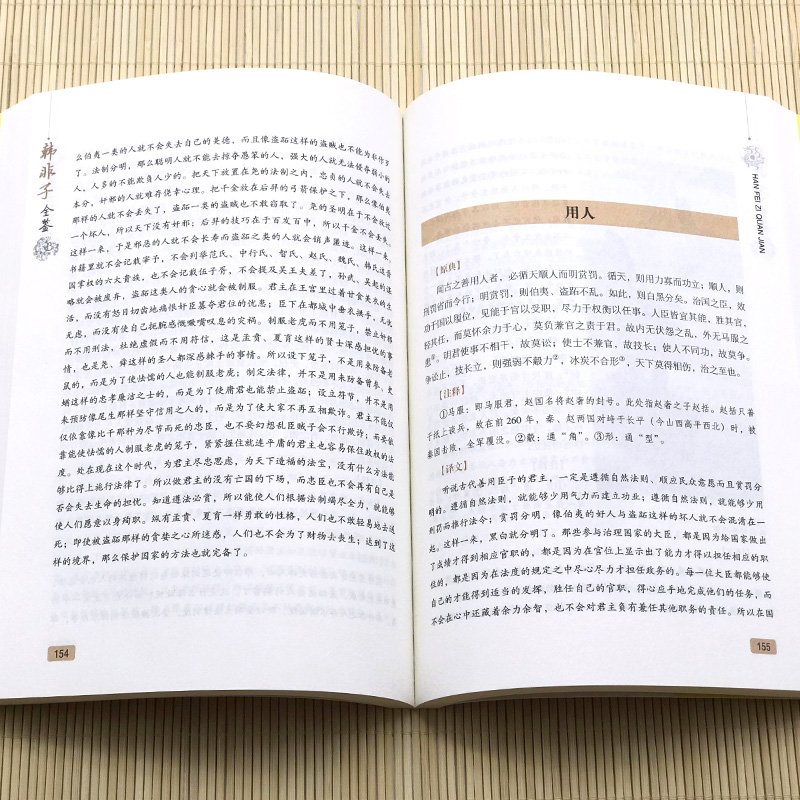 韩非子
全鉴
么伯夷一类的人就不会失去自己的美德，而且像盗跖这样的盗贼也不能为非作歹
了。法制分明，那么聪明人就不能去掠夺愚笨的人，强大的人就无法侵夺弱小的
人，人多的不能欺负人少的。把天下放置在尧的法制之内，忠贞的人就不会失去
本分，奸邪的人就难存侥幸心理。把千金放在后羿的弓箭保护之下，那么像伯夷
那样的人就不会丢失了，盗跖一类的盗贼也不敢窃取了。尧的圣明在于不会放过
一个坏人，所以天下没有奸邪；后羿的技巧在于百发百中，所以千金不会丢失。
这样一来，于是邪恶的人就不会长寿而盗跖之类的人就会销声匿迹。这样一来，
书籍里就不会记载宰予，不会列举范氏、中行氏、智氏、赵氏、魏氏、韩氏这晋
国掌权的六大贵族，也不会记载伍子胥，不会提及吴王夫差了，孙武、吴起的谋
略就会被废弃，盗跖这类人的贪心就会被制服。君主在王宫里过着甘食美衣的生
活，而没有怒目切齿地痛恨奸臣篡夺君位的忧患；臣下在都城中垂衣拱手，无忧
无虑，而没有使自己扼腕感慨噘嘴叹息的灾祸。制服老虎而不用笼子，禁止奸邪
而不用刑法，杜绝虚假而不用符信，这是孟贲、夏育这样的贤士深感担忧的事
情，也是尧、舜这样的圣人都深感棘手的事情。所以设下笼子，不是用来防备老
鼠的，而是为了使怯懦的人也能制服老虎；制定法律，并不是用来防备曾参、史
䲡这样的忠孝廉洁之士的，而是为了使庸君也能禁止盗跖；设立符节，并不是用
来预防像尾生那样坚守信用之人的，而是为了使大家不再互相欺诈。君主不能仅
仅依靠像比干那种为尽节而死的忠臣，也不要幻想乱臣贼子会不行欺诈；而要依
靠能使怯懦的人制服老虎的笼子，紧紧握住就连平庸的君主也容易保住政权的法
度。处在现在这个时代，为君主尽忠思虑，为天下造福的法宝，没有什么方法能
够比得上施行法律了。所以做君主的没有亡国的下场，而忠臣也不会再有自己是
否会失去生命的担忧。知道遵法必赏，所以能使人们根据法制竭尽全力，就能够
使人们愿意以身殉职。纵有孟贲、夏育一样勇敢的性格，人们也不敢轻易地去送
死；即使被盗跖那样的贪婪之心所迷惑，人们也不会为了财物去丧生；达到了这
样的境界，那么保护国家的方法也就完备了。
154
HAN FEI ZI QUAN JIAN
用人
【原典】
闻古之善用人者，必循天顺人而明赏罚。循天，则用力寡而功立；顺人，则
刑罚省而令行；明赏罚，则伯夷、盗跖不乱。如此，则白黑分矣。治国之臣，效
功于国以履位，见能于官以受职，尽力于权衡以任事。人臣皆宜其能，胜其官，
轻其任，而莫怀余力于心，莫负兼官之责于君。故内无伏怨之乱，外无马服之
患①。明君使事不相干，故莫讼；使士不兼官，故技长；使人不同功，故莫争。
争讼止，技长立，则强弱不觳力②，冰炭不合形③，天下莫得相伤，治之至也。
【注释】
①马服：即马服君，赵国名将赵奢的封号。此处指赵奢之子赵括。赵括只善
于纸上谈兵，故在前260年，秦、赵两国对峙于长平（今山西高平西北）时，被
秦国击败，全军覆没。②觳：通“角”。③形：通“型”。
【译文】
听说古代善用臣子的君主，一定是遵循自然法则、顺应民众意愿而且赏罚分
明的。遵循自然法则，就能够少用气力而建立功业；遵循自然法则，就能够少用
刑罚而推行法令；赏罚分明，像伯夷的好人与盗跖这样的坏人就不会混淆在一
起。这样一来，黑白就分明了。那些参与治理国家的大臣，都是因为给国家做出
了成绩才得到相应官职的，都是因为在官位上显示出了能力才得以担任相应的职
位的，都是因为在法度的规定之中尽心尽力才担任政务的。每一位大臣都能够使
自己的才能得到适当的发挥，胜任自己的官职，得心应手地完成他们的任务，而
不会在心中还藏着余力余智，也不会对君主负有兼任其他职务的责任。所以在国
155